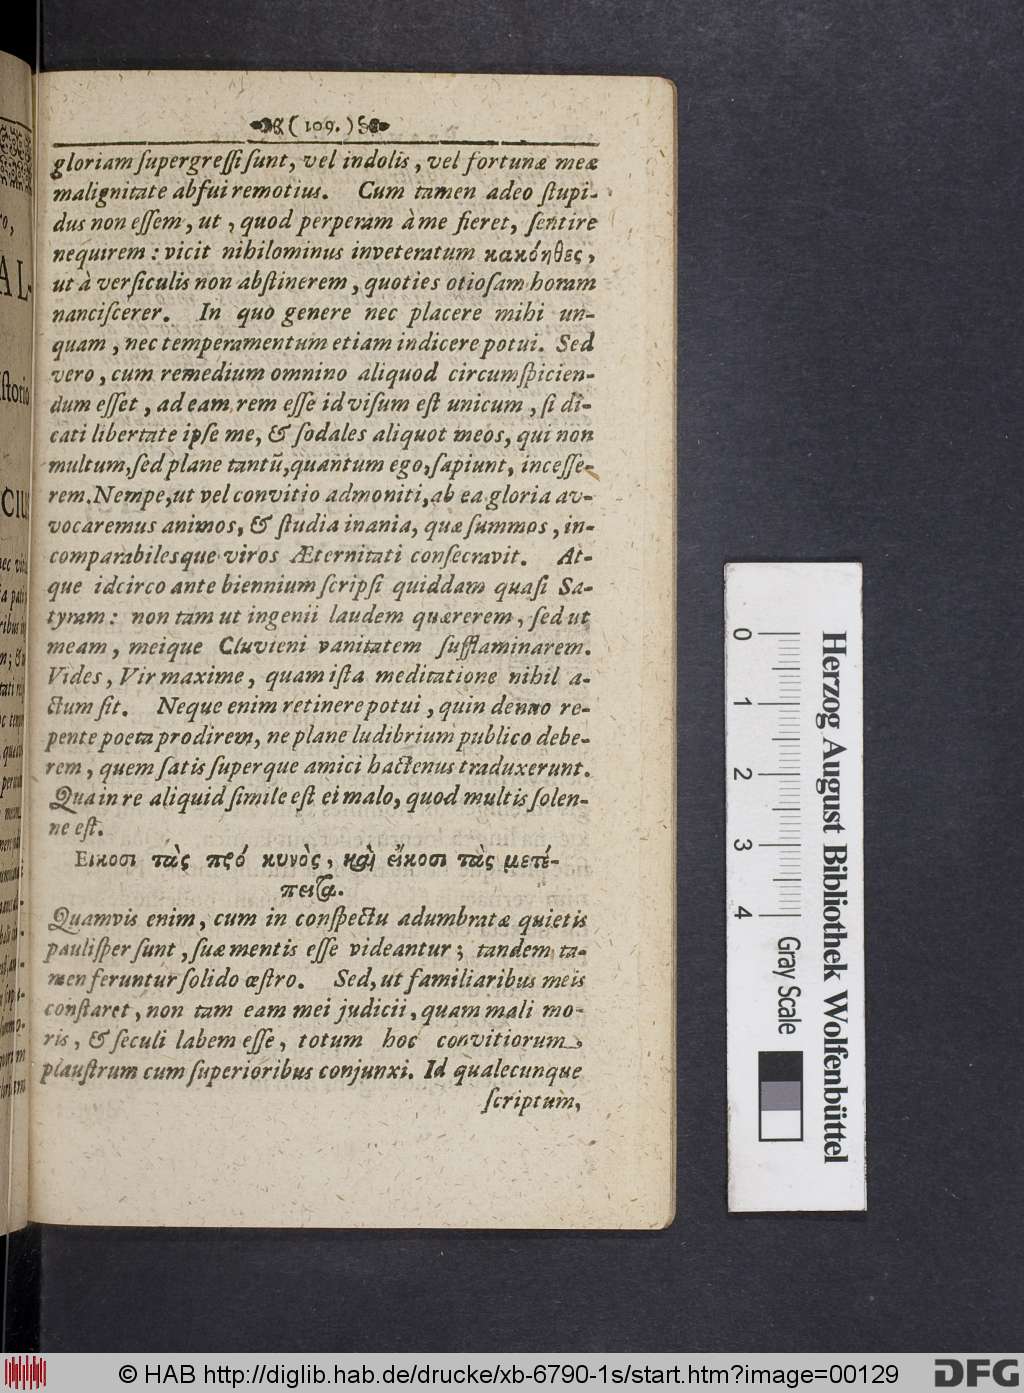 ( 109. )
gloriam ſupergreſſi ſunt, vel indolis, vel fortunæ meæ
malignitate abfui remotius. Cum tamen adeo ſtupi-
dus non eſſem, ut, quod perperam à me fieret, ſentire
nequirem: vicit nihilominus inveteratum κακόηθες,
ut à verſiculis non abſtinerem, quoties otioſam horam
nanciſcerer. In quo genere nec placere mihi un-
quam, nec temperamentum etiam indicere potui. Sed
vero, cum remedium omnino aliquod circumſpicien-
dum eſſet, ad eam rem eſſe id viſum eſt unicum, ſi di-
cati libertate ipſe me, & ſodales aliquot meos, qui non
multum, ſed plane tantũ, quantum ego, ſapiunt, inceſſe-
rem. Nempe, ut vel convitio admoniti, ab ea gloria av-
vocaremus animos, & ſtudia inania, quæ ſummos, in-
comparabilesque viros Æternitati conſecravit. At-
que idcirco ante biennium ſcripſi quiddam quaſi Sa-
tyram: non tam ut ingenii laudem quærerem, ſed ut
meam, meique Cluvieni vanitatem ſufflaminarem.
Vides, Vir maxime, quam iſta meditatione nihil a-
ctum ſit. Neque enim retinere potui, quin denuo re-
pente poeta prodirem, ne plane ludibrium publico debe-
rem, quem ſatis ſuperque amici hactenus traduxerunt.
Qua in re aliquid ſimile eſt ei malo, quod multis ſolen-
ne eſt.
Εικοσι τὰς πρό κυνὸς, καὶ εἴκοσι τὰς μετέ-
πειτα.
Quamvis enim, cum in conſpectu adumbratæ quietis
pauliſper ſunt, ſuæ mentis eſſe videantur; tandem ta-
men feruntur ſolido œſtro. Sed, ut familiaribus meis
conſtaret, non tam eam mei judicii, quam mali mo-
ris, & ſeculi labem eſſe, totum hoc convitiorum
plauſtrum cum ſuperioribus conjunxi. Id qualecunque
ſcriptum,
0 1 2 3 4
Gray Scale
Herzog August Bibliothek Wolfenbüttel
© HAB http://diglib.hab.de/drucke/xb-6790-1s/start.htm?image=00129
DFG